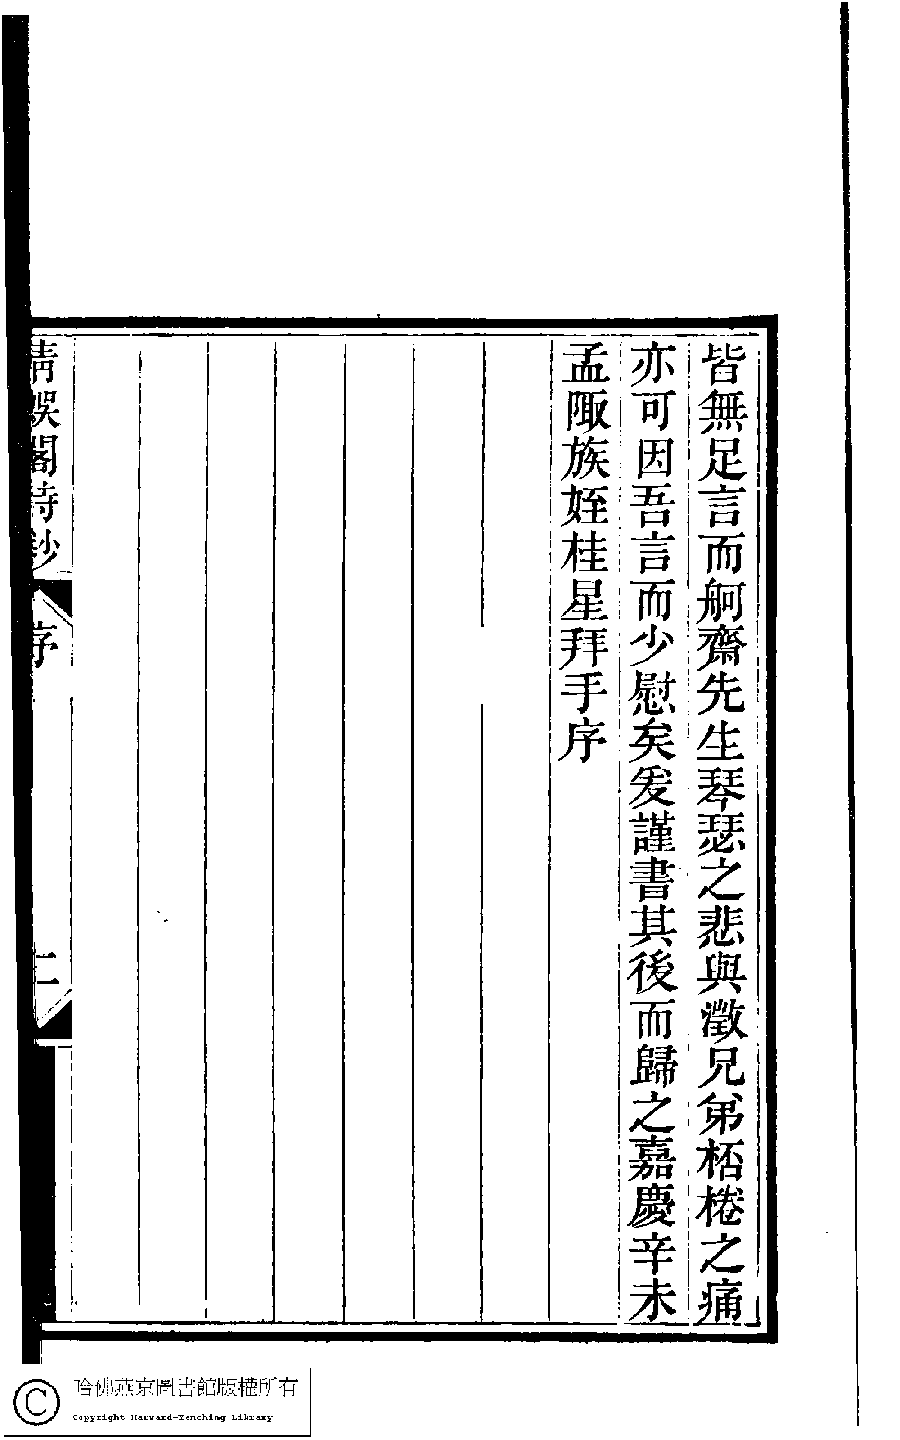 皆無足言而舸齋先生琴瑟之悲與澂兄弟桮棬之痛
亦可因吾言而少慰矣爰謹書其後而歸之嘉慶辛未
孟陬族姪桂星拜手序
清娛閣詩鈔
序
二
哈佛燕京圖書館版權所有
Copyright Harvard-Yenching Library